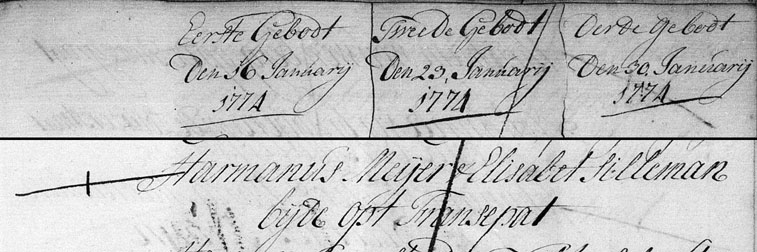 Eerste Gebodt
Den 16 Januarij
1774
Tweede Gebodt
Den 23, Januarij
1774
Derde Gebodt
Den 30, Januarij
1774
Harmanus Meijer & Elisabet Silleman
bijde opt Transepat